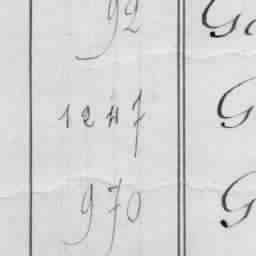 92 G
1247 G
970 G